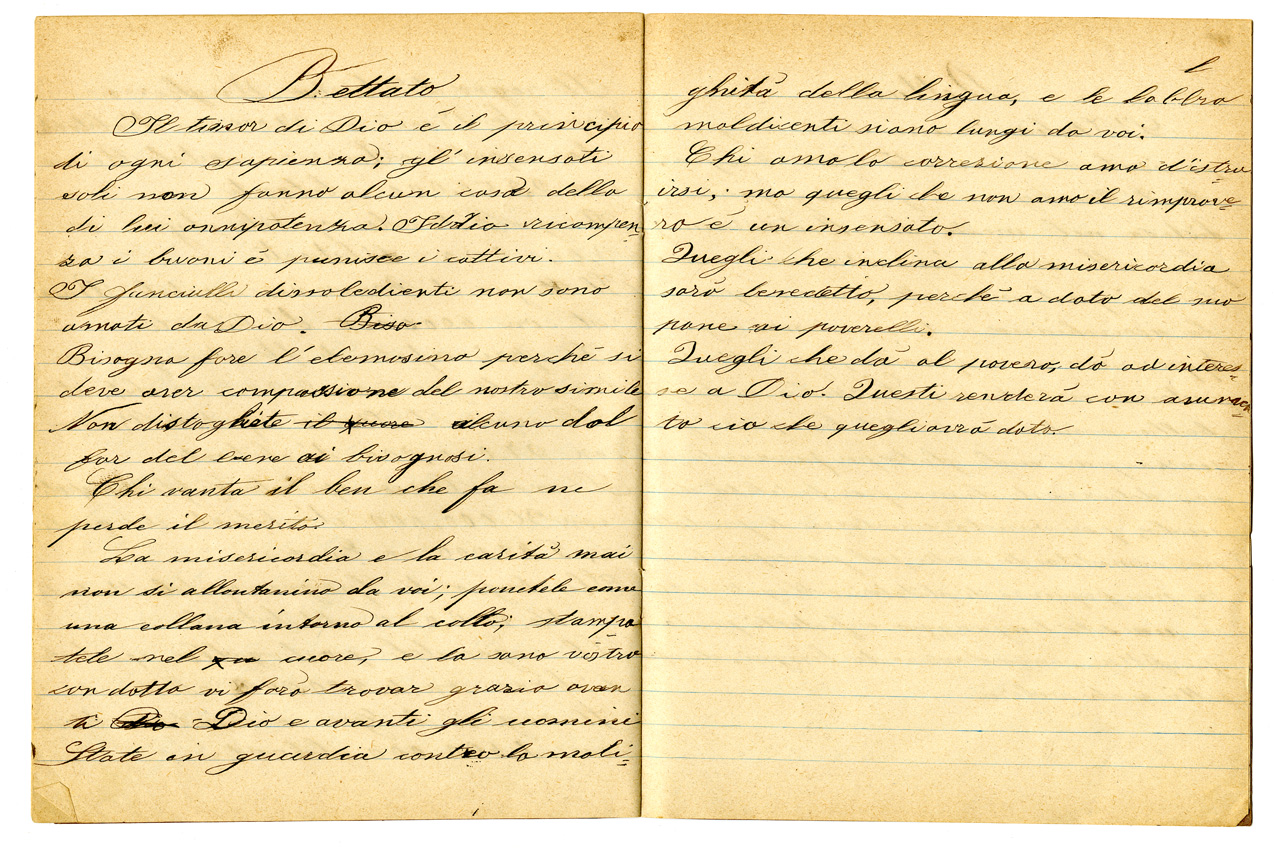 Dettato
Il timor di Dio é il principio
di ogni sapienza; gl' insensati
soli non fanno alcun cosa della
di lui onnipotenza. Iddio ricompen=
za i buoni é punisce i cattivi.
I fanciulli dissoledienti non sono
amati da Dio. Biso
Bisogna fare l'elemosina perché si
deve aver compassione del nostro simile
Non distogliete il cuore alcuno dal
far del bene ai bisognosi.
Chi vanta il ben che fa ne
perde il merito.
La misericordia e la carità mai
non si allontanino da voi; ponetele come
una collana intorno al collo; stampa
tele nel cuore, e la sana vostra
condotta vi farà trovar grazia avan
ti Dio Dio e avanti gli uomini
State in guardia contro la mali=
l
ghità della lingua, e le labbra
maldicenti siano lungi da voi.
Chi ama la correzione ama d'istru
irsi; ma quegli che non ama il rimprove=
ro é un insensato.
Quegli che inclina alla misericordia
sarà benedetto, perché a dato del suo
pane ai poverelli.
Quegli che dá al povero, dá ad interes=
se a Dio. Questi renderà con aumen=
to ció che quegli avrá dato.